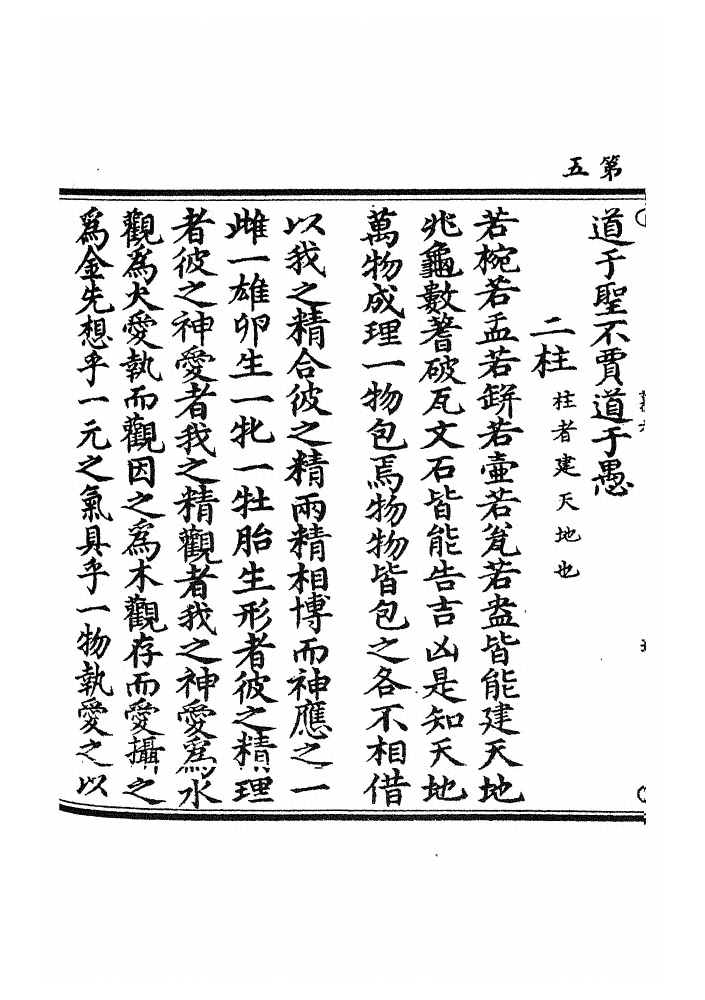 第五
道于聖不賈道于愚
二柱 柱者建天地也
若椀若盂若缾若壺若瓮若盎皆能建天地
兆龜數蓍破瓦文石皆能告吉凶是知天地
萬物成理一物包焉物物皆包之各不相借
以我之精合彼之精兩精相博而神應之一
雌一雄卵生一牝一牡胎生形者彼之精理
者彼之神愛者我之精觀者我之神愛爲水
觀爲火愛執而觀因之爲木觀存而愛攝之
爲金先想乎一元之氣具乎一物執愛之以